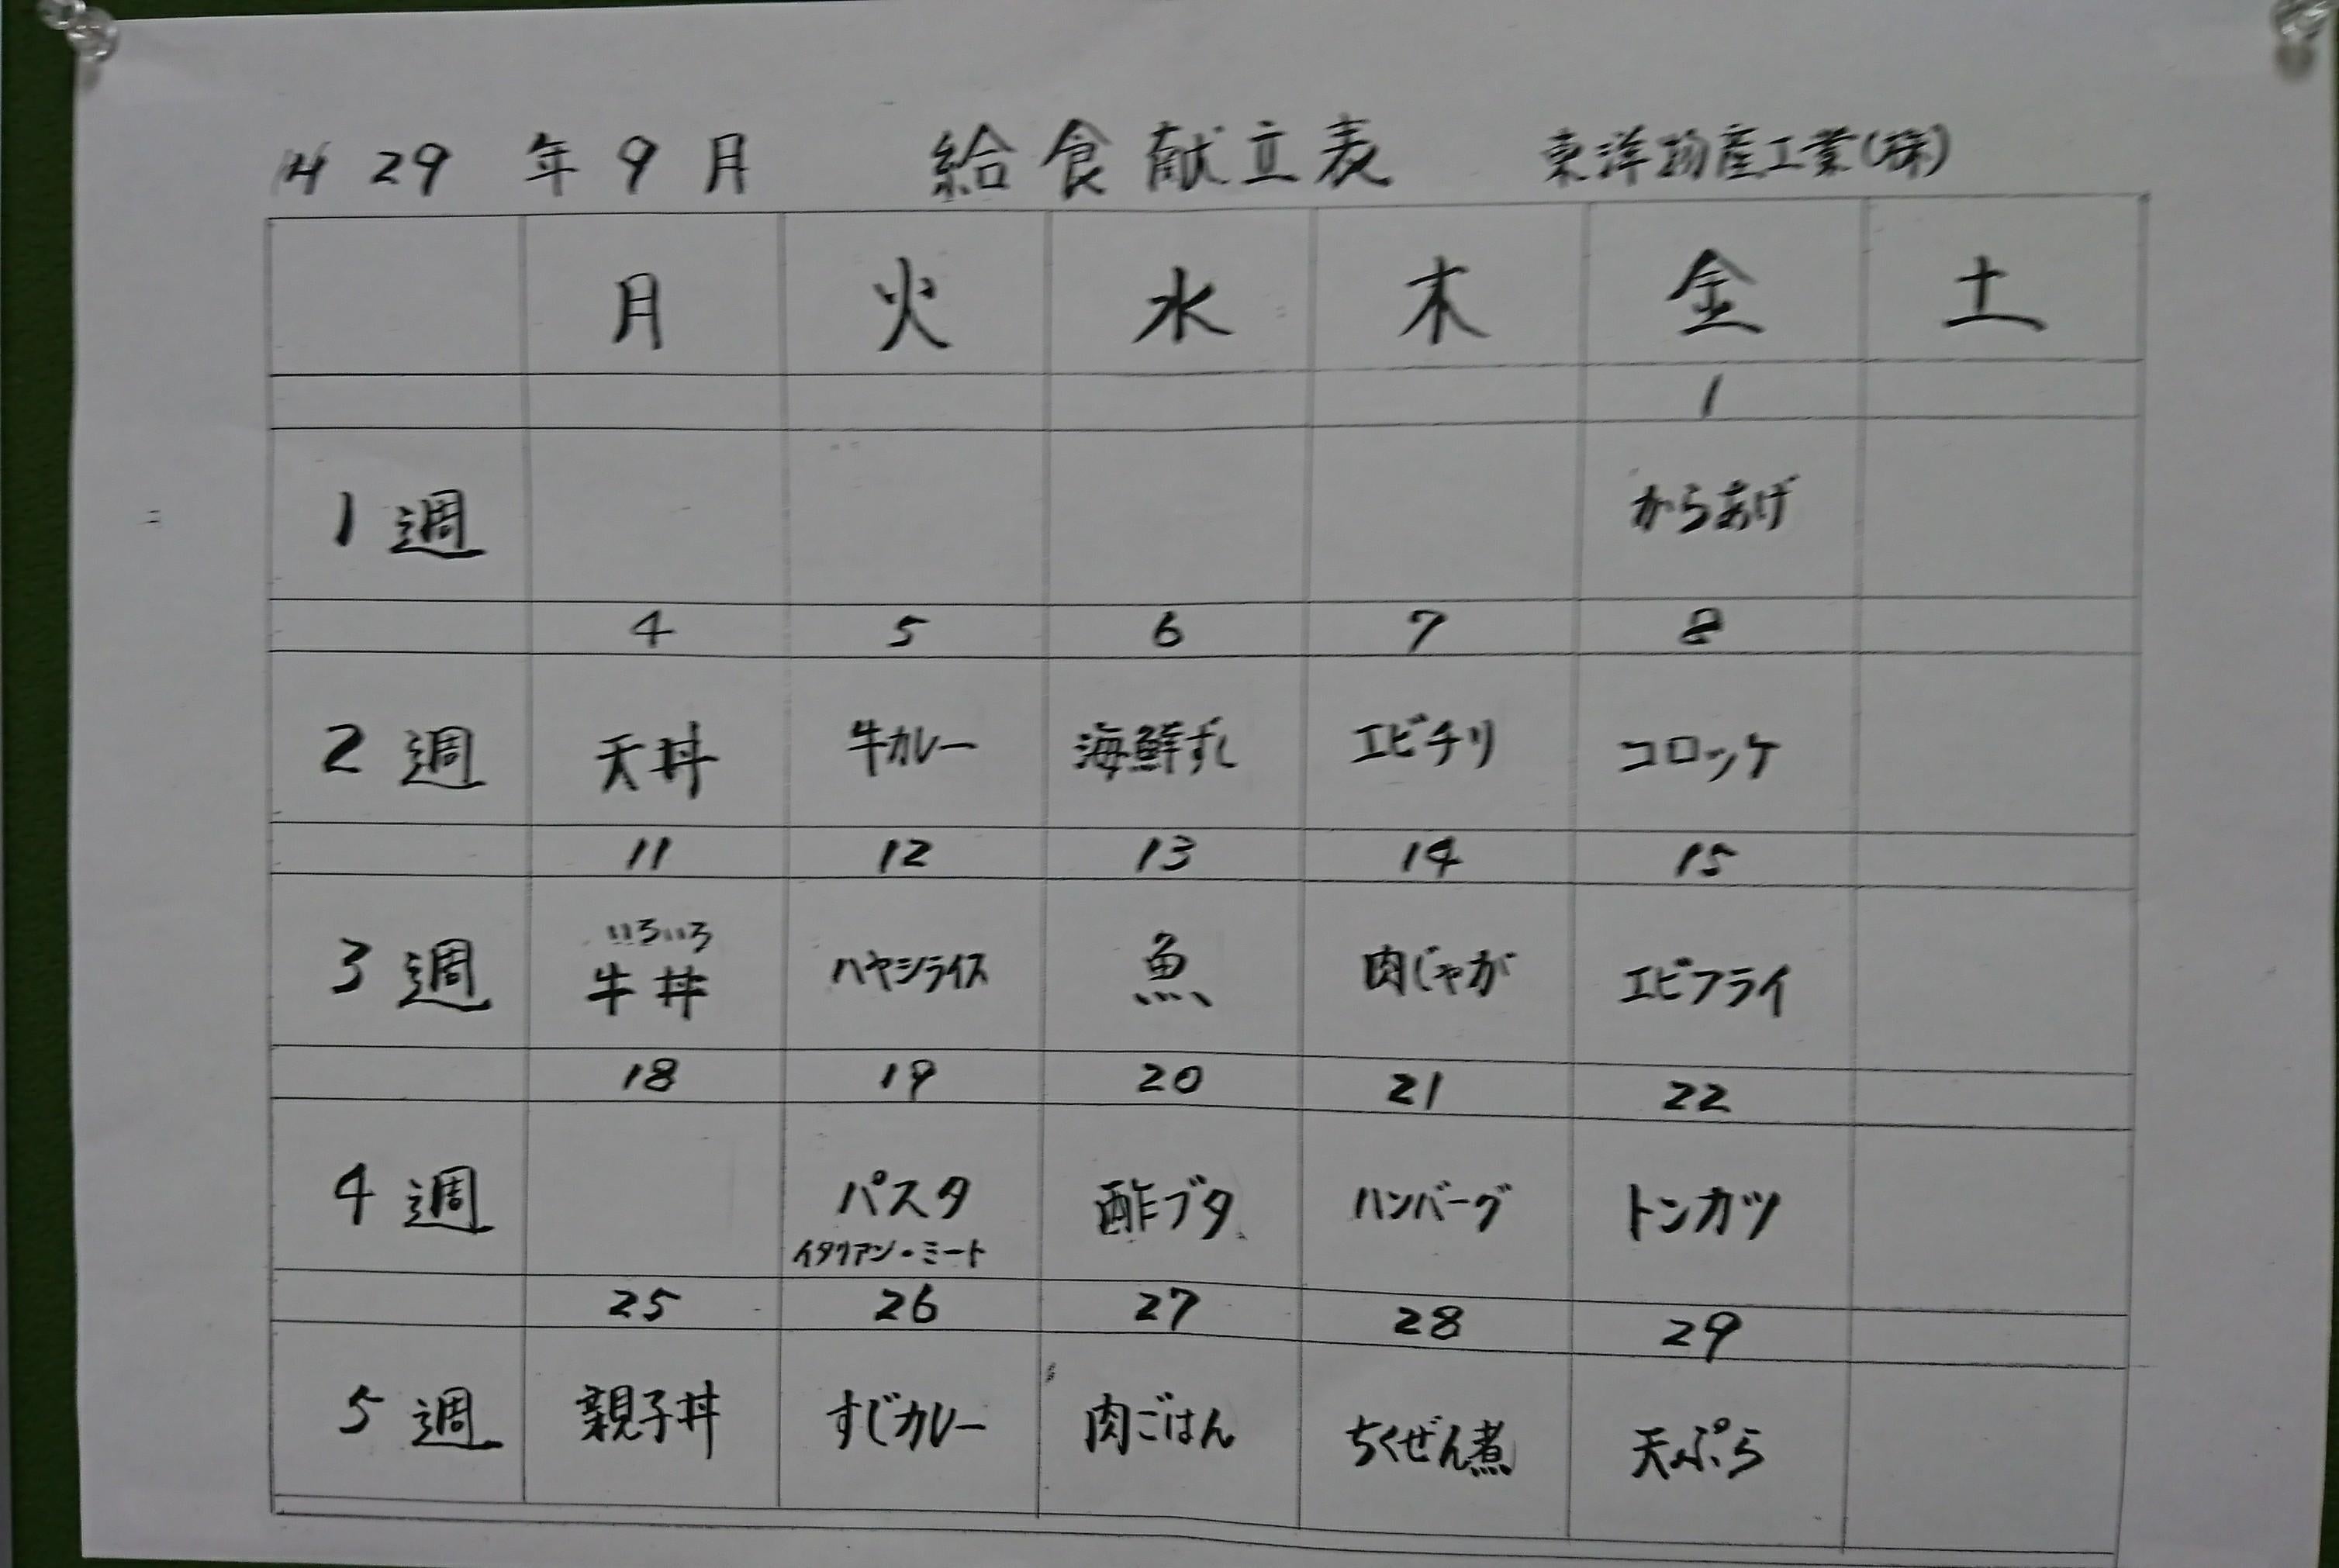 H 29 年 9 月 給食献立表 東洋物産工業(株)
月 火 水 木 金 土
1
1週 からあげ
4 5 6 7 8
2週 天丼 牛カレー 海鮮ずし エビチリ コロッケ
11 12 13 14 15
いろいろ
3週 牛丼 ハヤシライス 魚 肉じゃが エビフライ
18 19 20 21 22
4週 パスタ 酢ブタ ハンバーグ トンカツ
イタリアン・ミート
25 26 27 28 29
5週 親子丼 すじカレー 肉ごはん ちくぜん煮 天ぷら